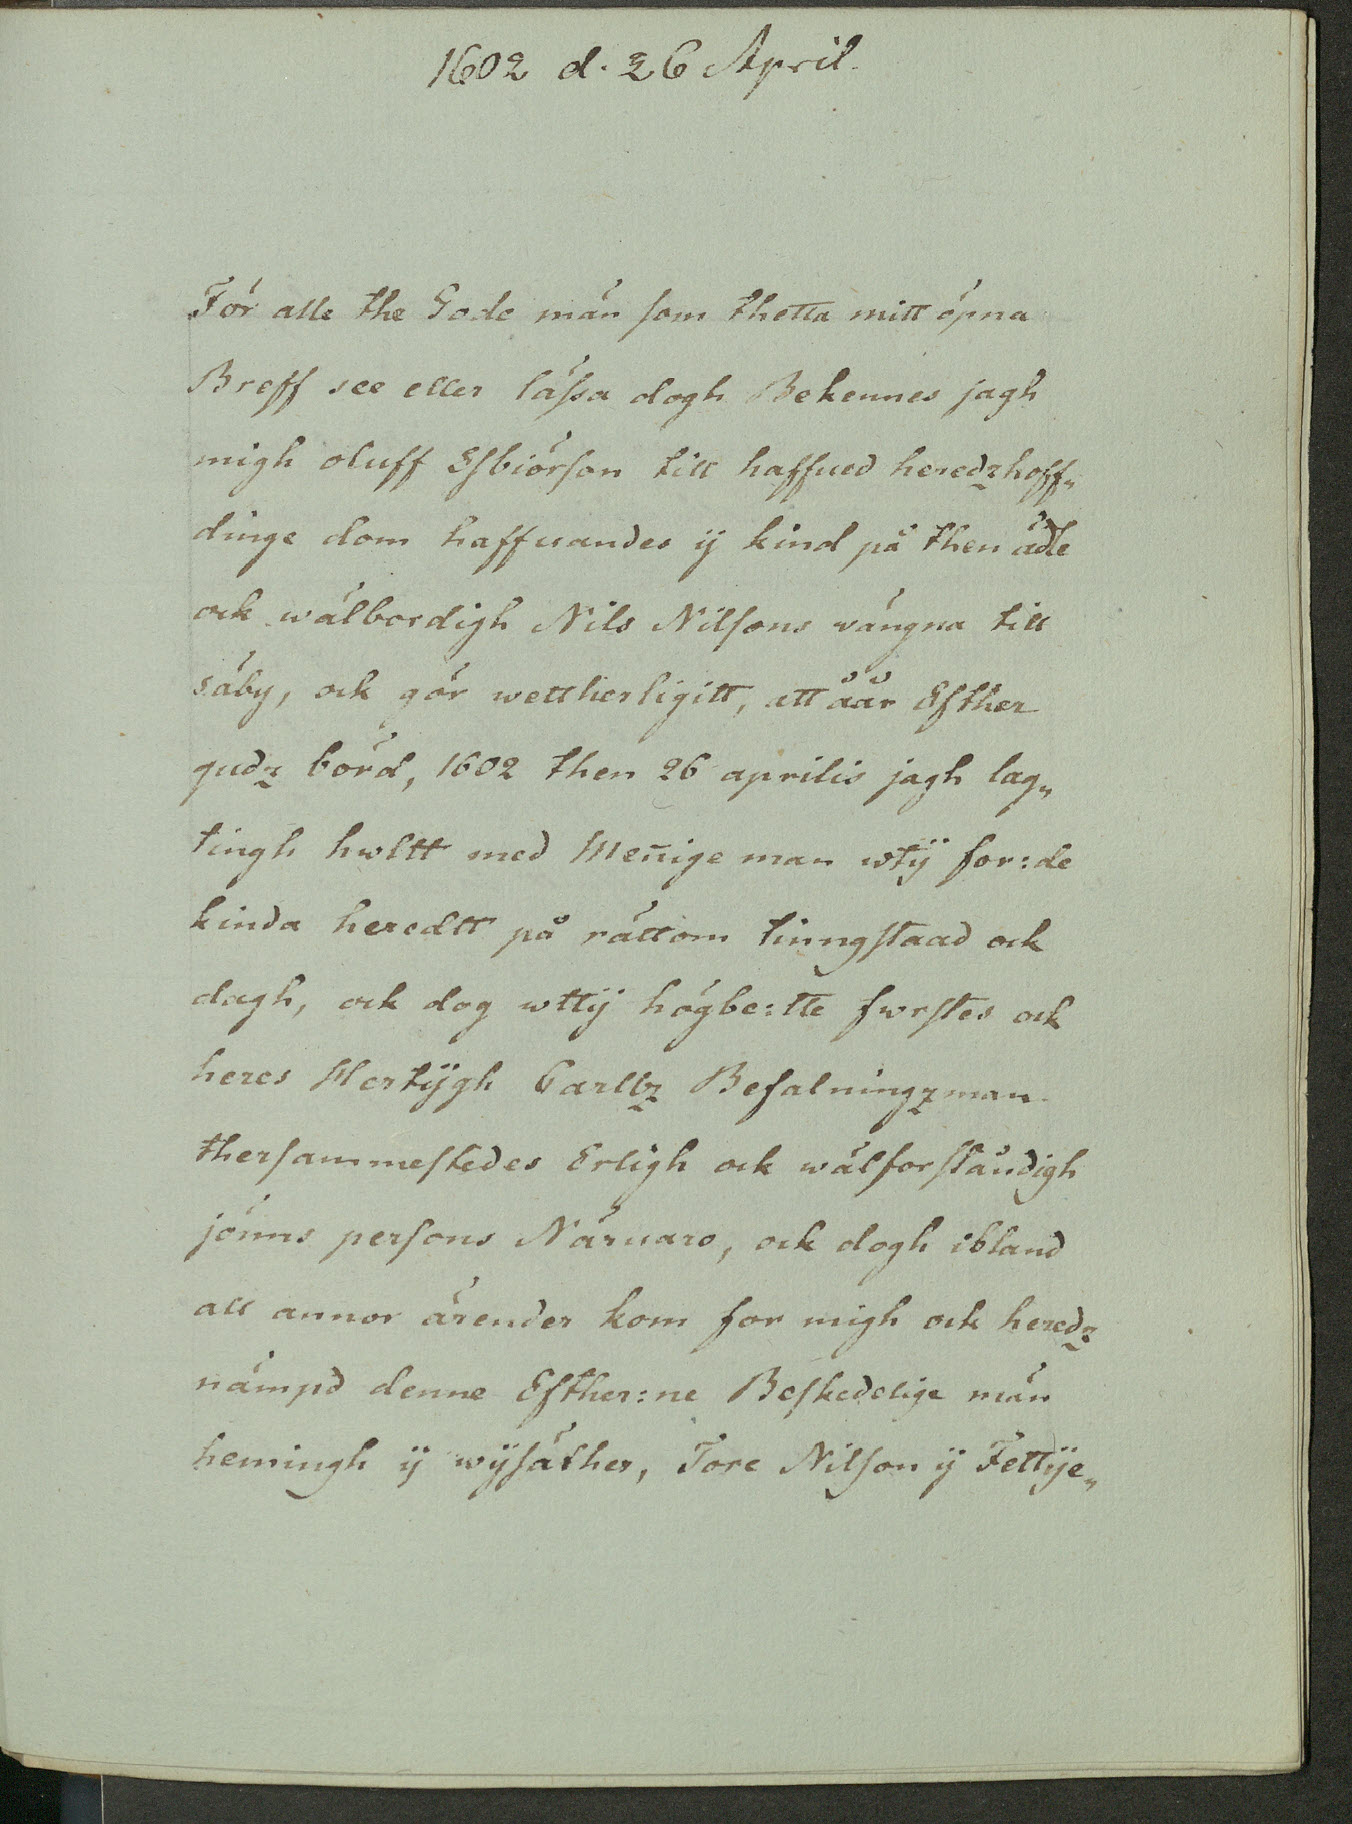 1602 d. 26 April.
För alle the Gode män som thetta mitt öpna
Breff see eller läsza dogh Bekennes jagh
migh oluff Esbiörson till haffued heredzhoff„
dinge dom haffuandes ij kind på then ädle
ock wälbordigh Nils Nilsons vängna till
säby, ock gör wettherligitt, att åår Efther
gudz börd, 1602 then 26 aprilis jagh lag„
tingh hwltt med Men̄ige man wtij for:de
kinda heredtt på rättom tinngstaad ock
dagh, ock dog wttij högbe:tte fwrstes ock
heres Hertijgh Carllz Befalningzman
thersammestedes Erligh ock wälforståndigh
jönns persons Näruaro, ock dogh ibland
all annor ärender kom for migh ock heredz
nämpd denne Efther:ne Beskedelige män
hemingh ij wijsäther, Tore Nilson ij Fettije„